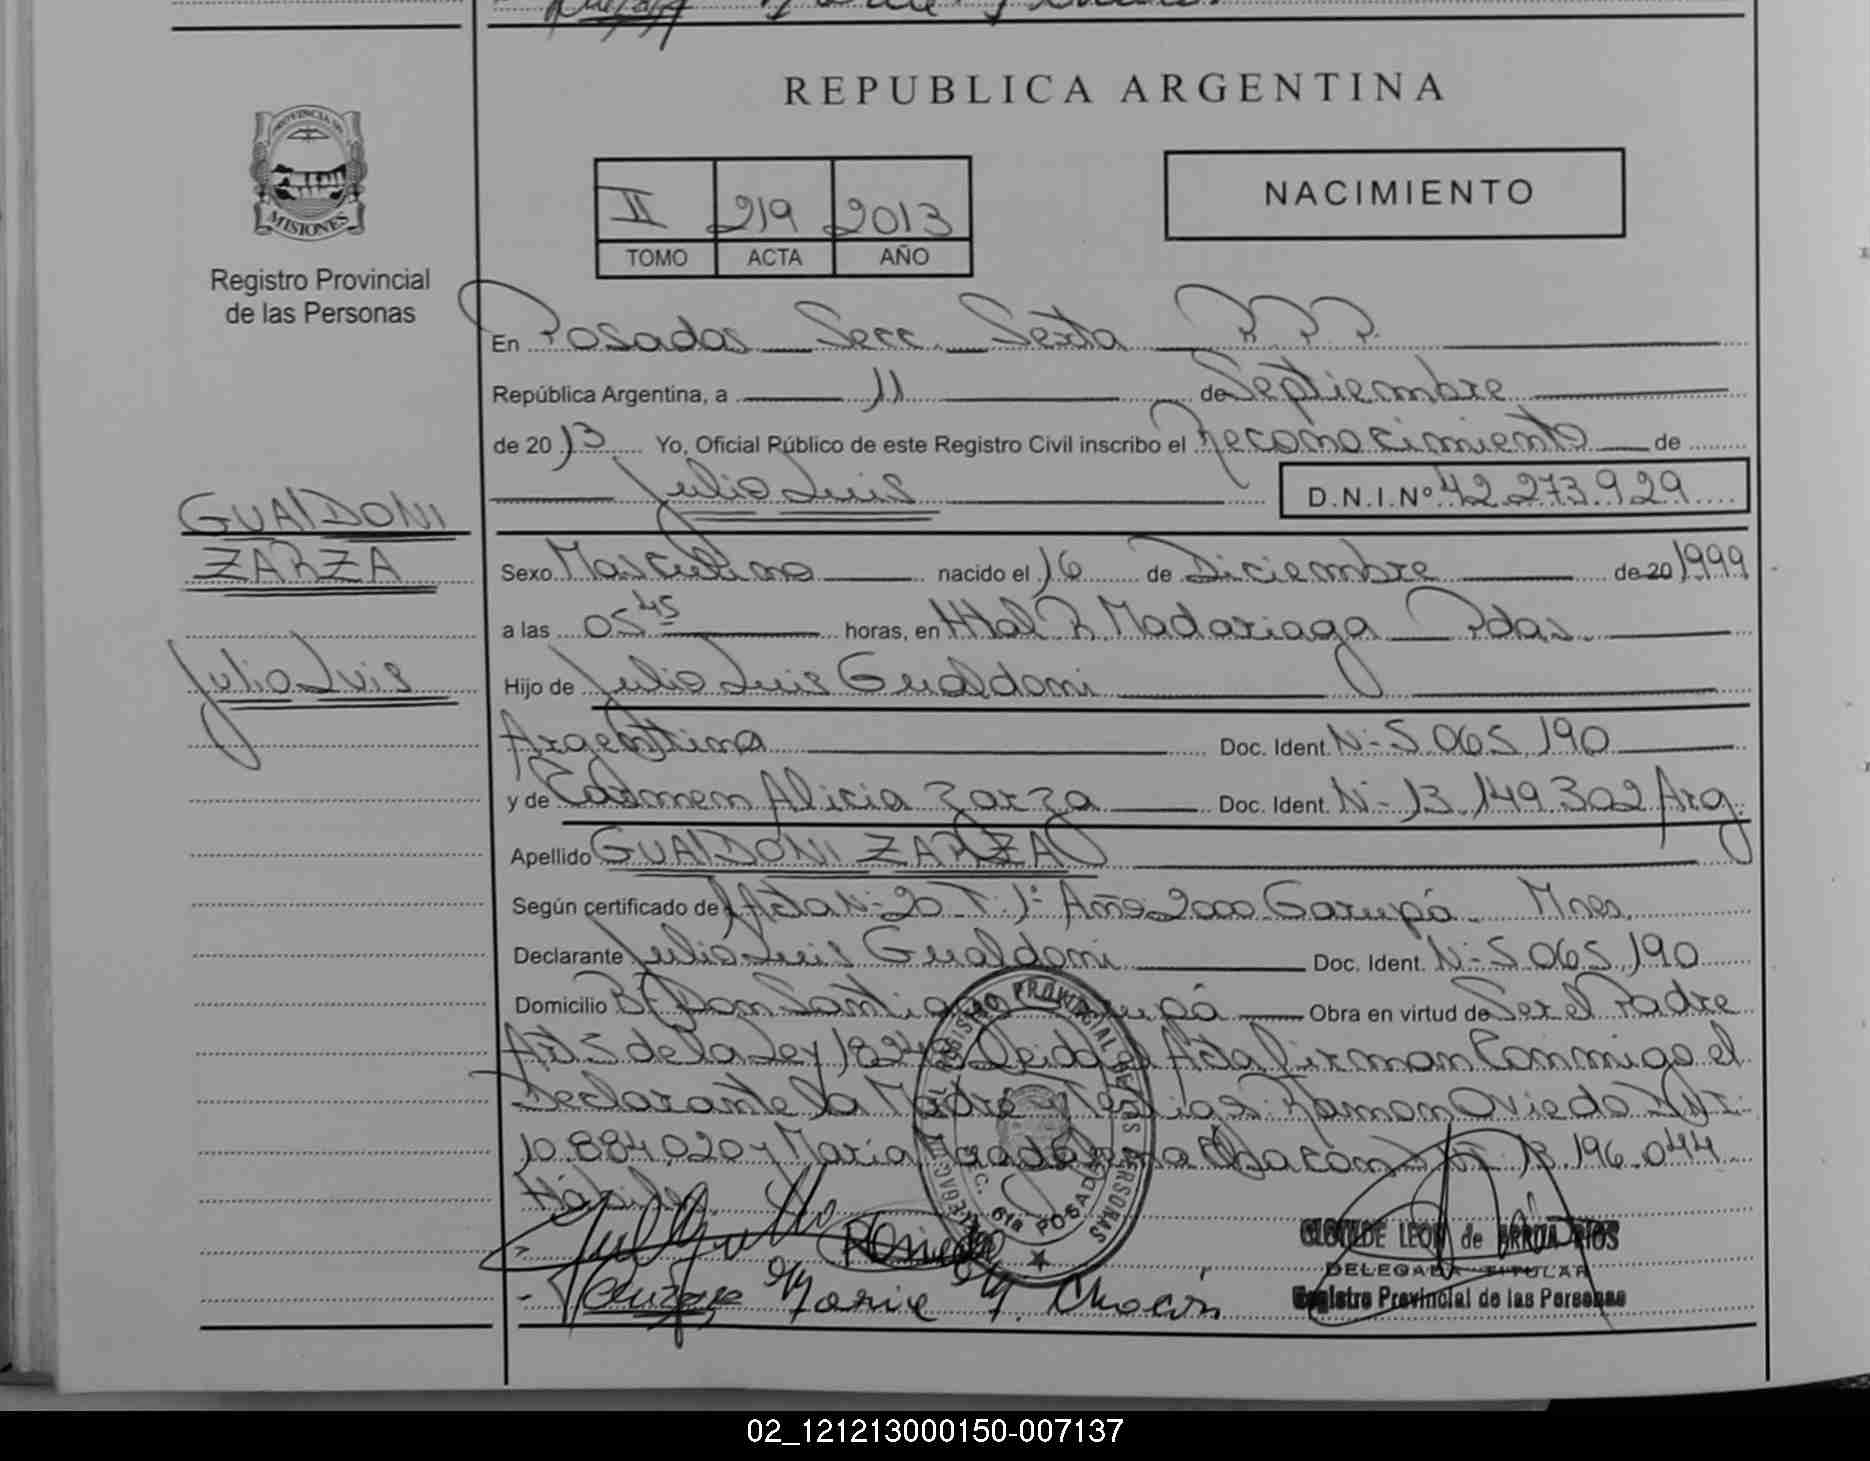 REPUBLICA ARGENTINA
PROVINCIA DE
MISIONES
Registro Provincial
de las Personas
II 219 2013
TOMO ACTA AÑO
NACIMIENTO
En Posadas Secc. Sexta R.P.P.
República Argentina, a 11 de Septiembre
de 2013 Yo, Oficial Público de este Registro Civil inscribo el Reconocimiento de
Julio Luis D.N.I.Nº 42.273.929
GUALDONI
ZARZA
Julio Luis
Sexo Masculino nacido el 16 de Diciembre de 20 1999
a las 05 45 horas, en Htal R. Madariaga Pdas.
Hijo de Julio Luis Gualdoni
Argentina Doc. Ident. Nº 5.065.190
y de Carmen Alicia Zarza Doc. Ident. Nº 13.149.302 Arg.
Apellido GUALDONI ZARZA
Según certificado de Acta Nº 20 T. 1º Año 2000 Garupá Mnes.
Declarante Julio Luis Gualdoni Doc. Ident. Nº 5.065.190
Domicilio Bº Don Santiago Garupá Obra en virtud de Ser el Padre
Art 5 de la Ley 18248 Leida el Acta firman Conmigo el
Declarante la Madre y Testigos: Ramon Oviedo
10.884.020 y María Magdalena Chacón 13.196.044
Hábiles
REGISTRO PROVINCIAL DE LAS PERSONAS
SEC. 6ta POSADAS
Maria M. Chacón
CLOTILDE LEON de ARRUA RIOS
DELEGADA TITULAR
Registro Provincial de las Personas
02_121213000150-007137